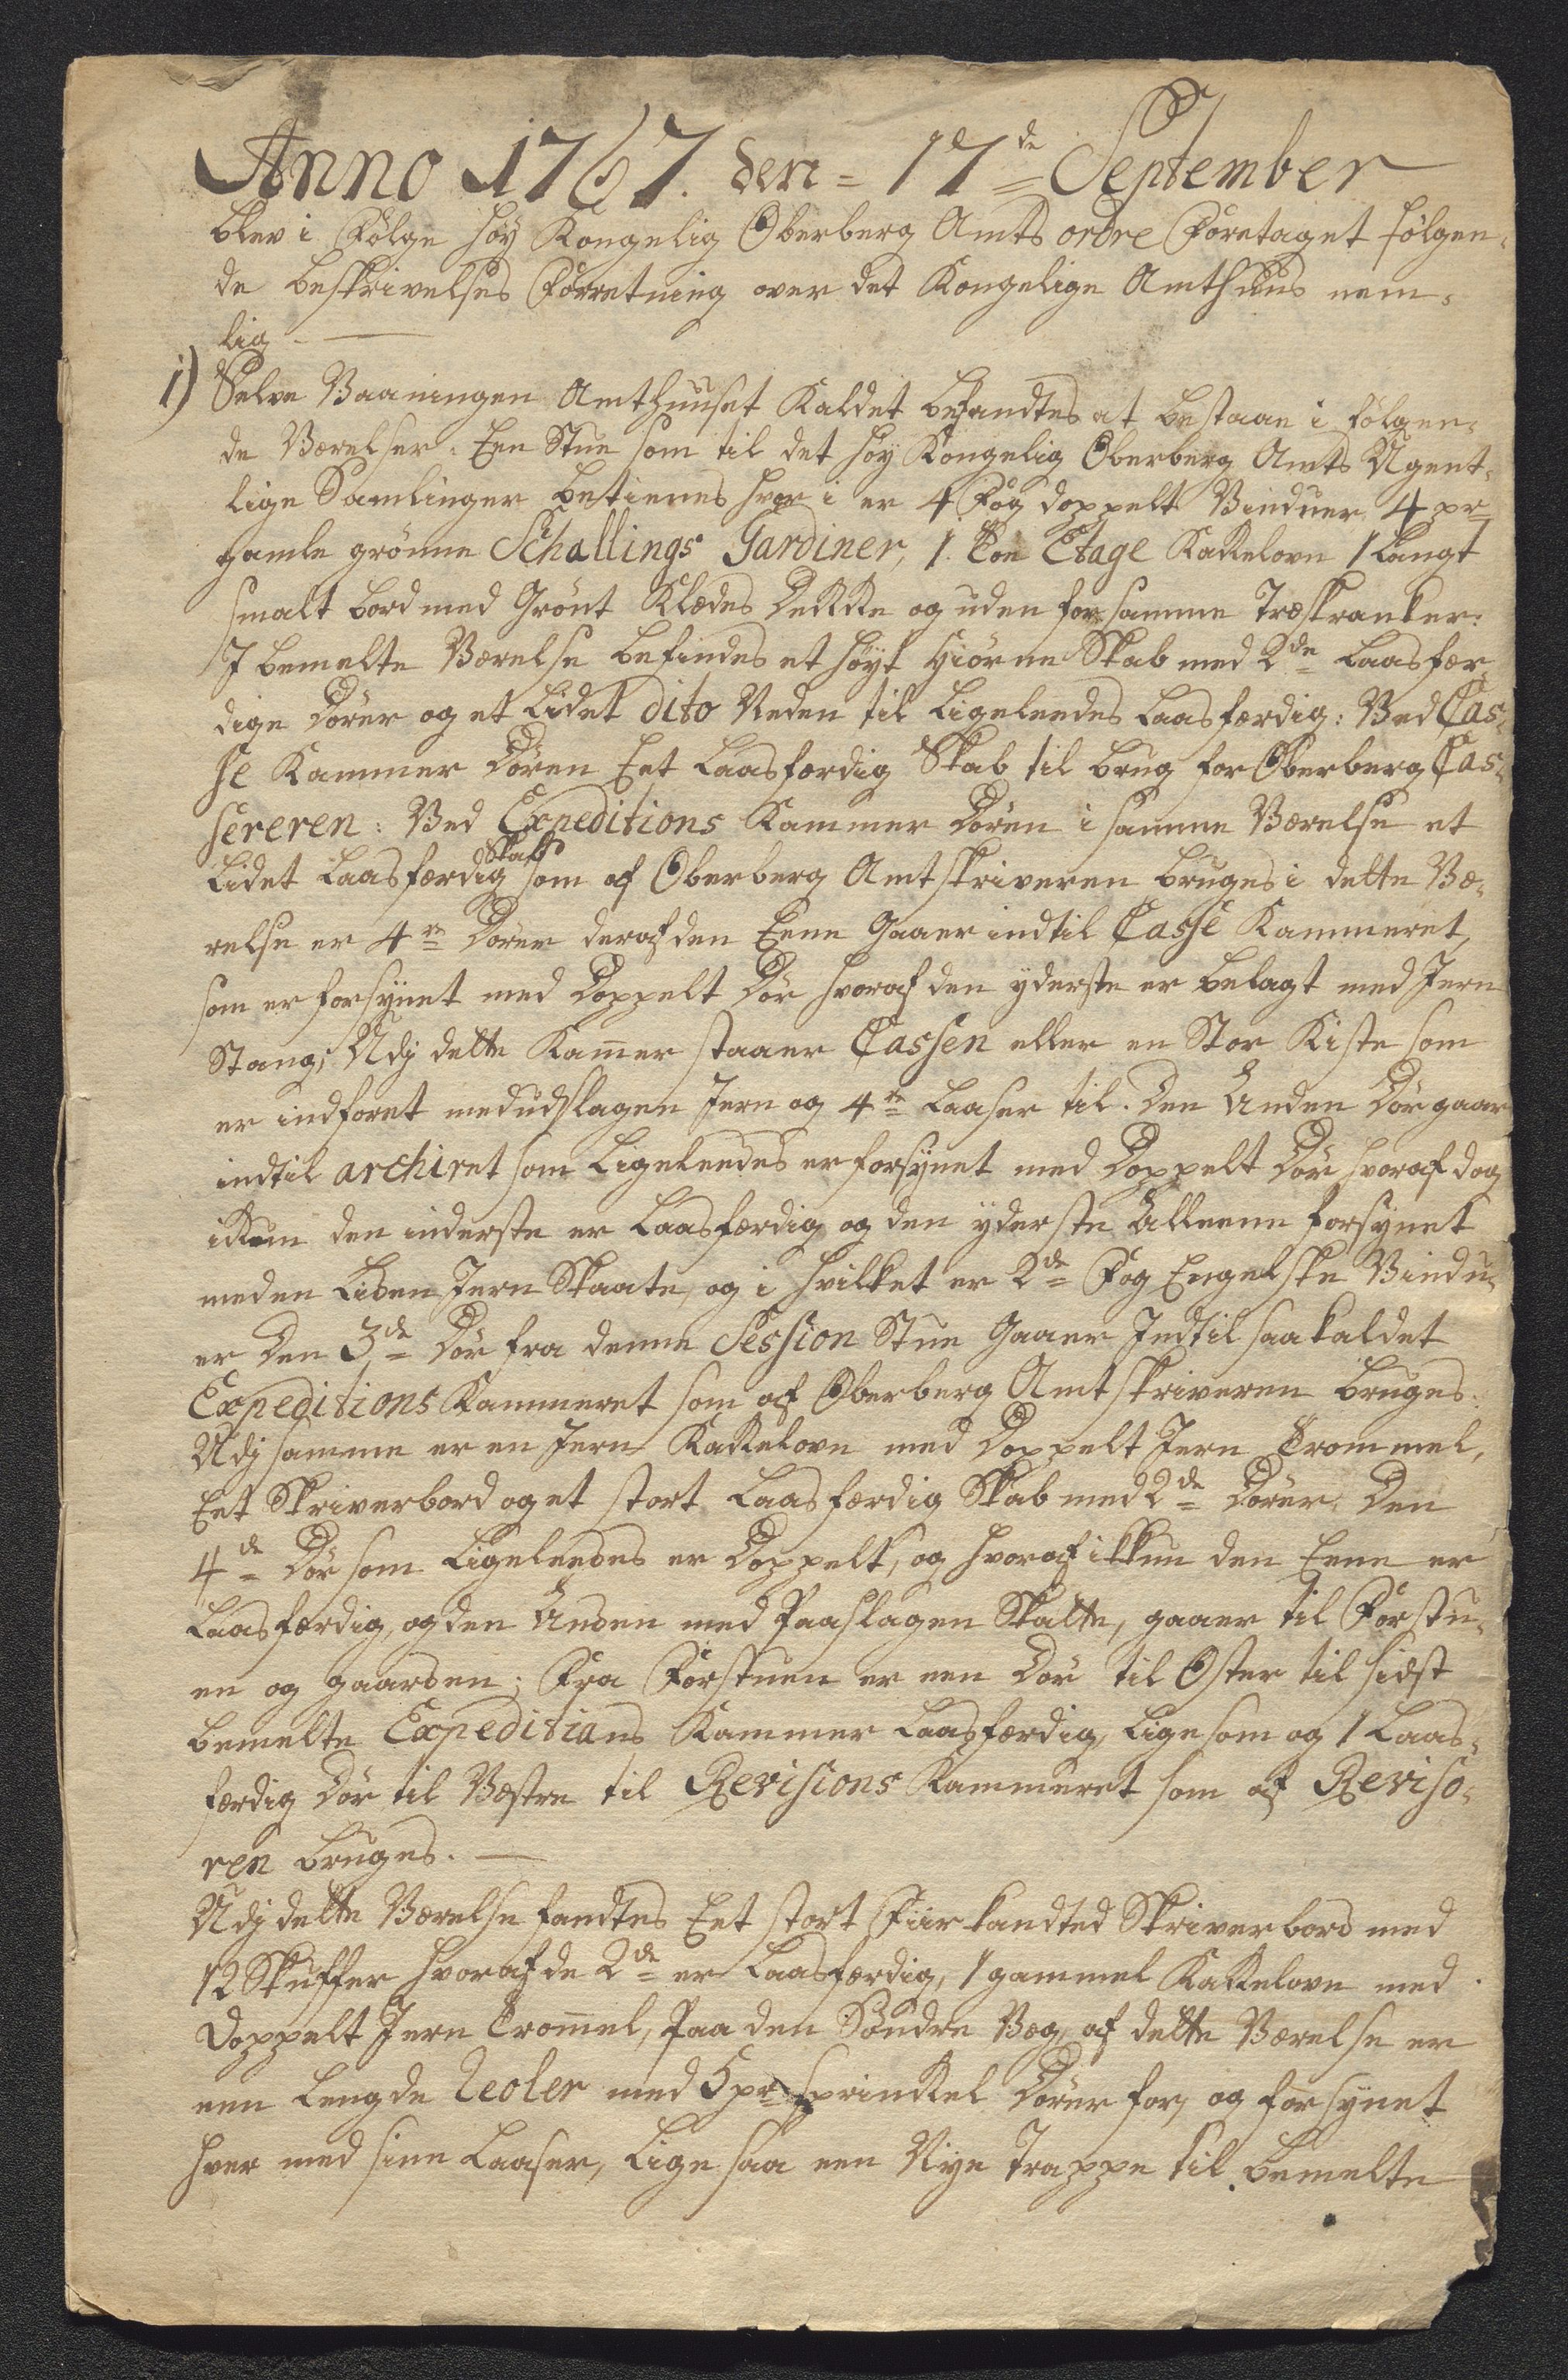 Anno 1767. den = 17de September
blev i Følge høy Kongelig Oberberg Amts ordre Foretaget følgen-
de beskrivelses Forretning over det Kongelige Amthuus nem-
lig
1) Selve Vaaningen Amthuuset Kaldet befandtes at bestaae i følgen-
de Værelser: Een Stue som til det høy Kongelig Oberberg Amts Ugent-
lige Samlinger betienes hvor i er 4 Fög doppelt Vinduer 4 pr
gamle grønne Schallings Gardiner, 1. Toe Etage Kakkelovn 1 Langt
smalt bord med Grønt Klædes Dekke og uden for samme Træskranker:
I bemelte Værelse befindes et høyt Hiørne Skab med 2de Laasfær-
dige Dörer og et Lidet dito Neden til Ligeleedes Laasfærdig: Ved Cas-
se Kammer Dören Eet Laasfærdig Skab til brug for Oberberg Cas-
sereren: Ved Expeditions Kammer Dören i samme Værelse et
Lidet Laasfærdig Skab som af Oberberg Amtskriveren bruges i dette Væ-
relse er 4re Dörer deraf den Eene Gaaer indtil Casse Kammeret,
som er forsynet med Doppelt Dör hvoraf den yderste er belagt med Jern
Stang; Udj dette Kam̅er staaer Cassen eller en Stor Kiste som
er indforet med udslagen Jern og 4re Laaser til. Den Anden Dör gaar
indtil archivet som Ligeleedes er forsynet med Doppelt Dör hvoraf dog
ikkun den inderste er Laasfærdig og den yderste Alleene forsynet
med en Liden Jern Skaate, og i hvilket er 2de Fög Engelske Vindu-
er Den 3de Dör fra denne Session Stue Gaaer Indtil saa kaldet
Expeditions Kammeret som af Oberberg Amtskriveren bruges.
Udj samme er en Jern Kakkelovn med Doppelt Jern Trommel,
Eet Skriverbord og et stort Laasfærdig Skab med 2de Dörer. Den
4de Dör som Ligeleedes er Doppelt, og hvoraf ikkun den Eene er
Laasfærdig, og den Anden med Paaslagen Skatte, gaaer til Forstu-
en og gaarden; Fra Forstuen er een Dör til Öster til sidst
bemelte Expeditians Kammer Laasfærdig, Ligesom og 1 Laas-
færdig Dör til Vestre til Revisions Kammeret som af Reviso-
ren bruges.
Udj dette Værelse fandtes Eet stort Fiirkandted Skriverbord med
12 Skuffer hvoraf de 2de er Laasfærdig, 1 gammel Kakkelovn med
Doppelt Jern Trom̅el, Paa den Söndre Væg af dette Værelse er
een Lengde Reoler med 5 pr Sprinkel Dörer for, og forsynet
hver med sine Laaser, Lige saa een Nye Trappe til bemelte